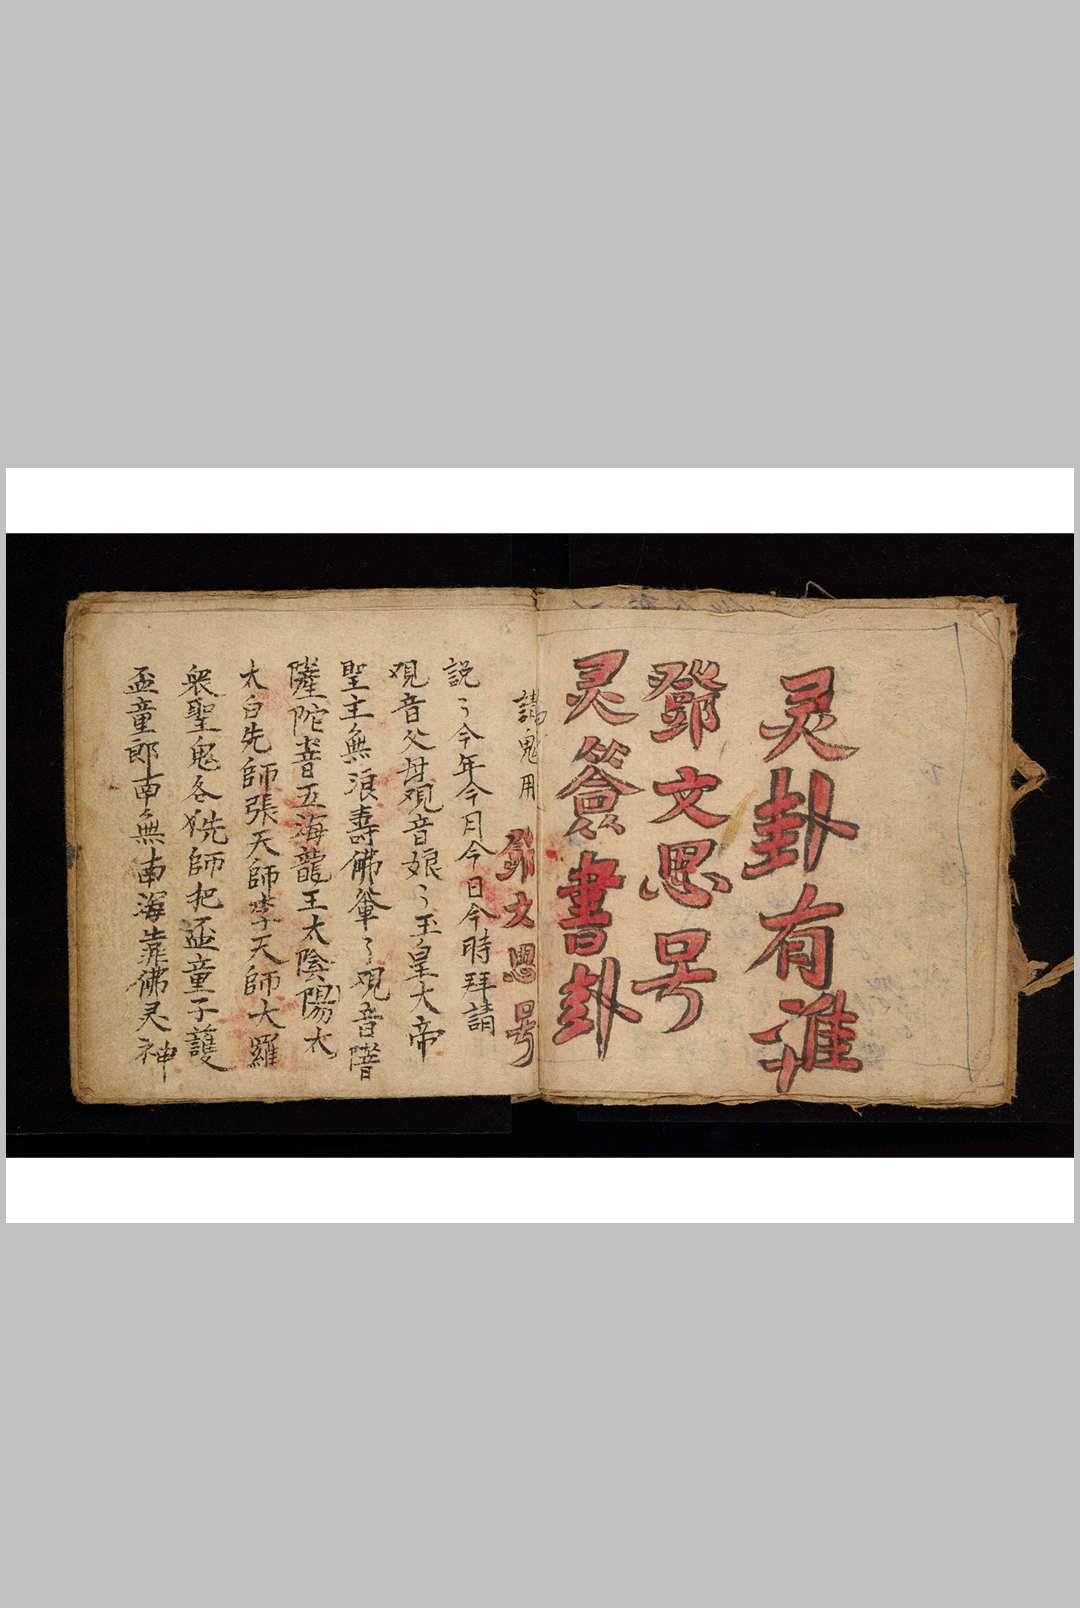 灵卦有准
鄧文思号
灵簽書卦
請鬼用 鄧文思号
説々今年今月今日今時拜請
观音父母观音娘々玉皇大帝
聖主無浪壽佛爺々观音
薩陀 五海龍王太陰陽太
太白先師張天師李天師大羅
衆聖鬼谷先師把盃童子護
盃童郎南無南海靠佛灵神